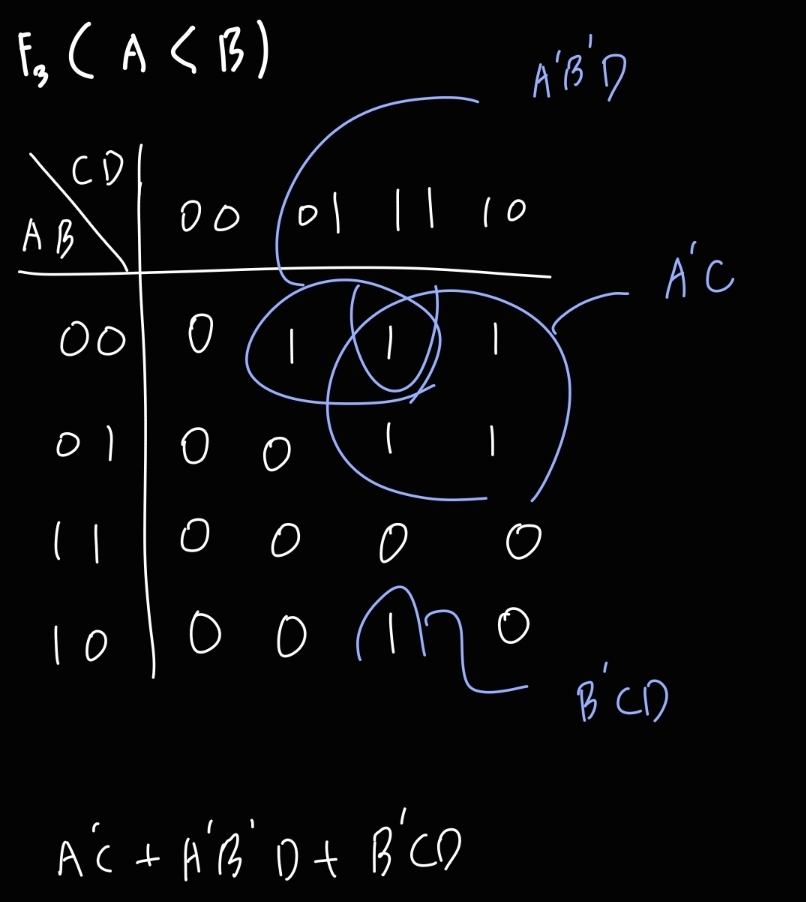 F₃ ( A < B )
A'B'D
CD
AB
00 01 11 10
A'C
00 0 1 1 1
01 0 0 1 1
11 0 0 0 0
10 0 0 1 0
B'CD
A'C + A'B'D + B'CD